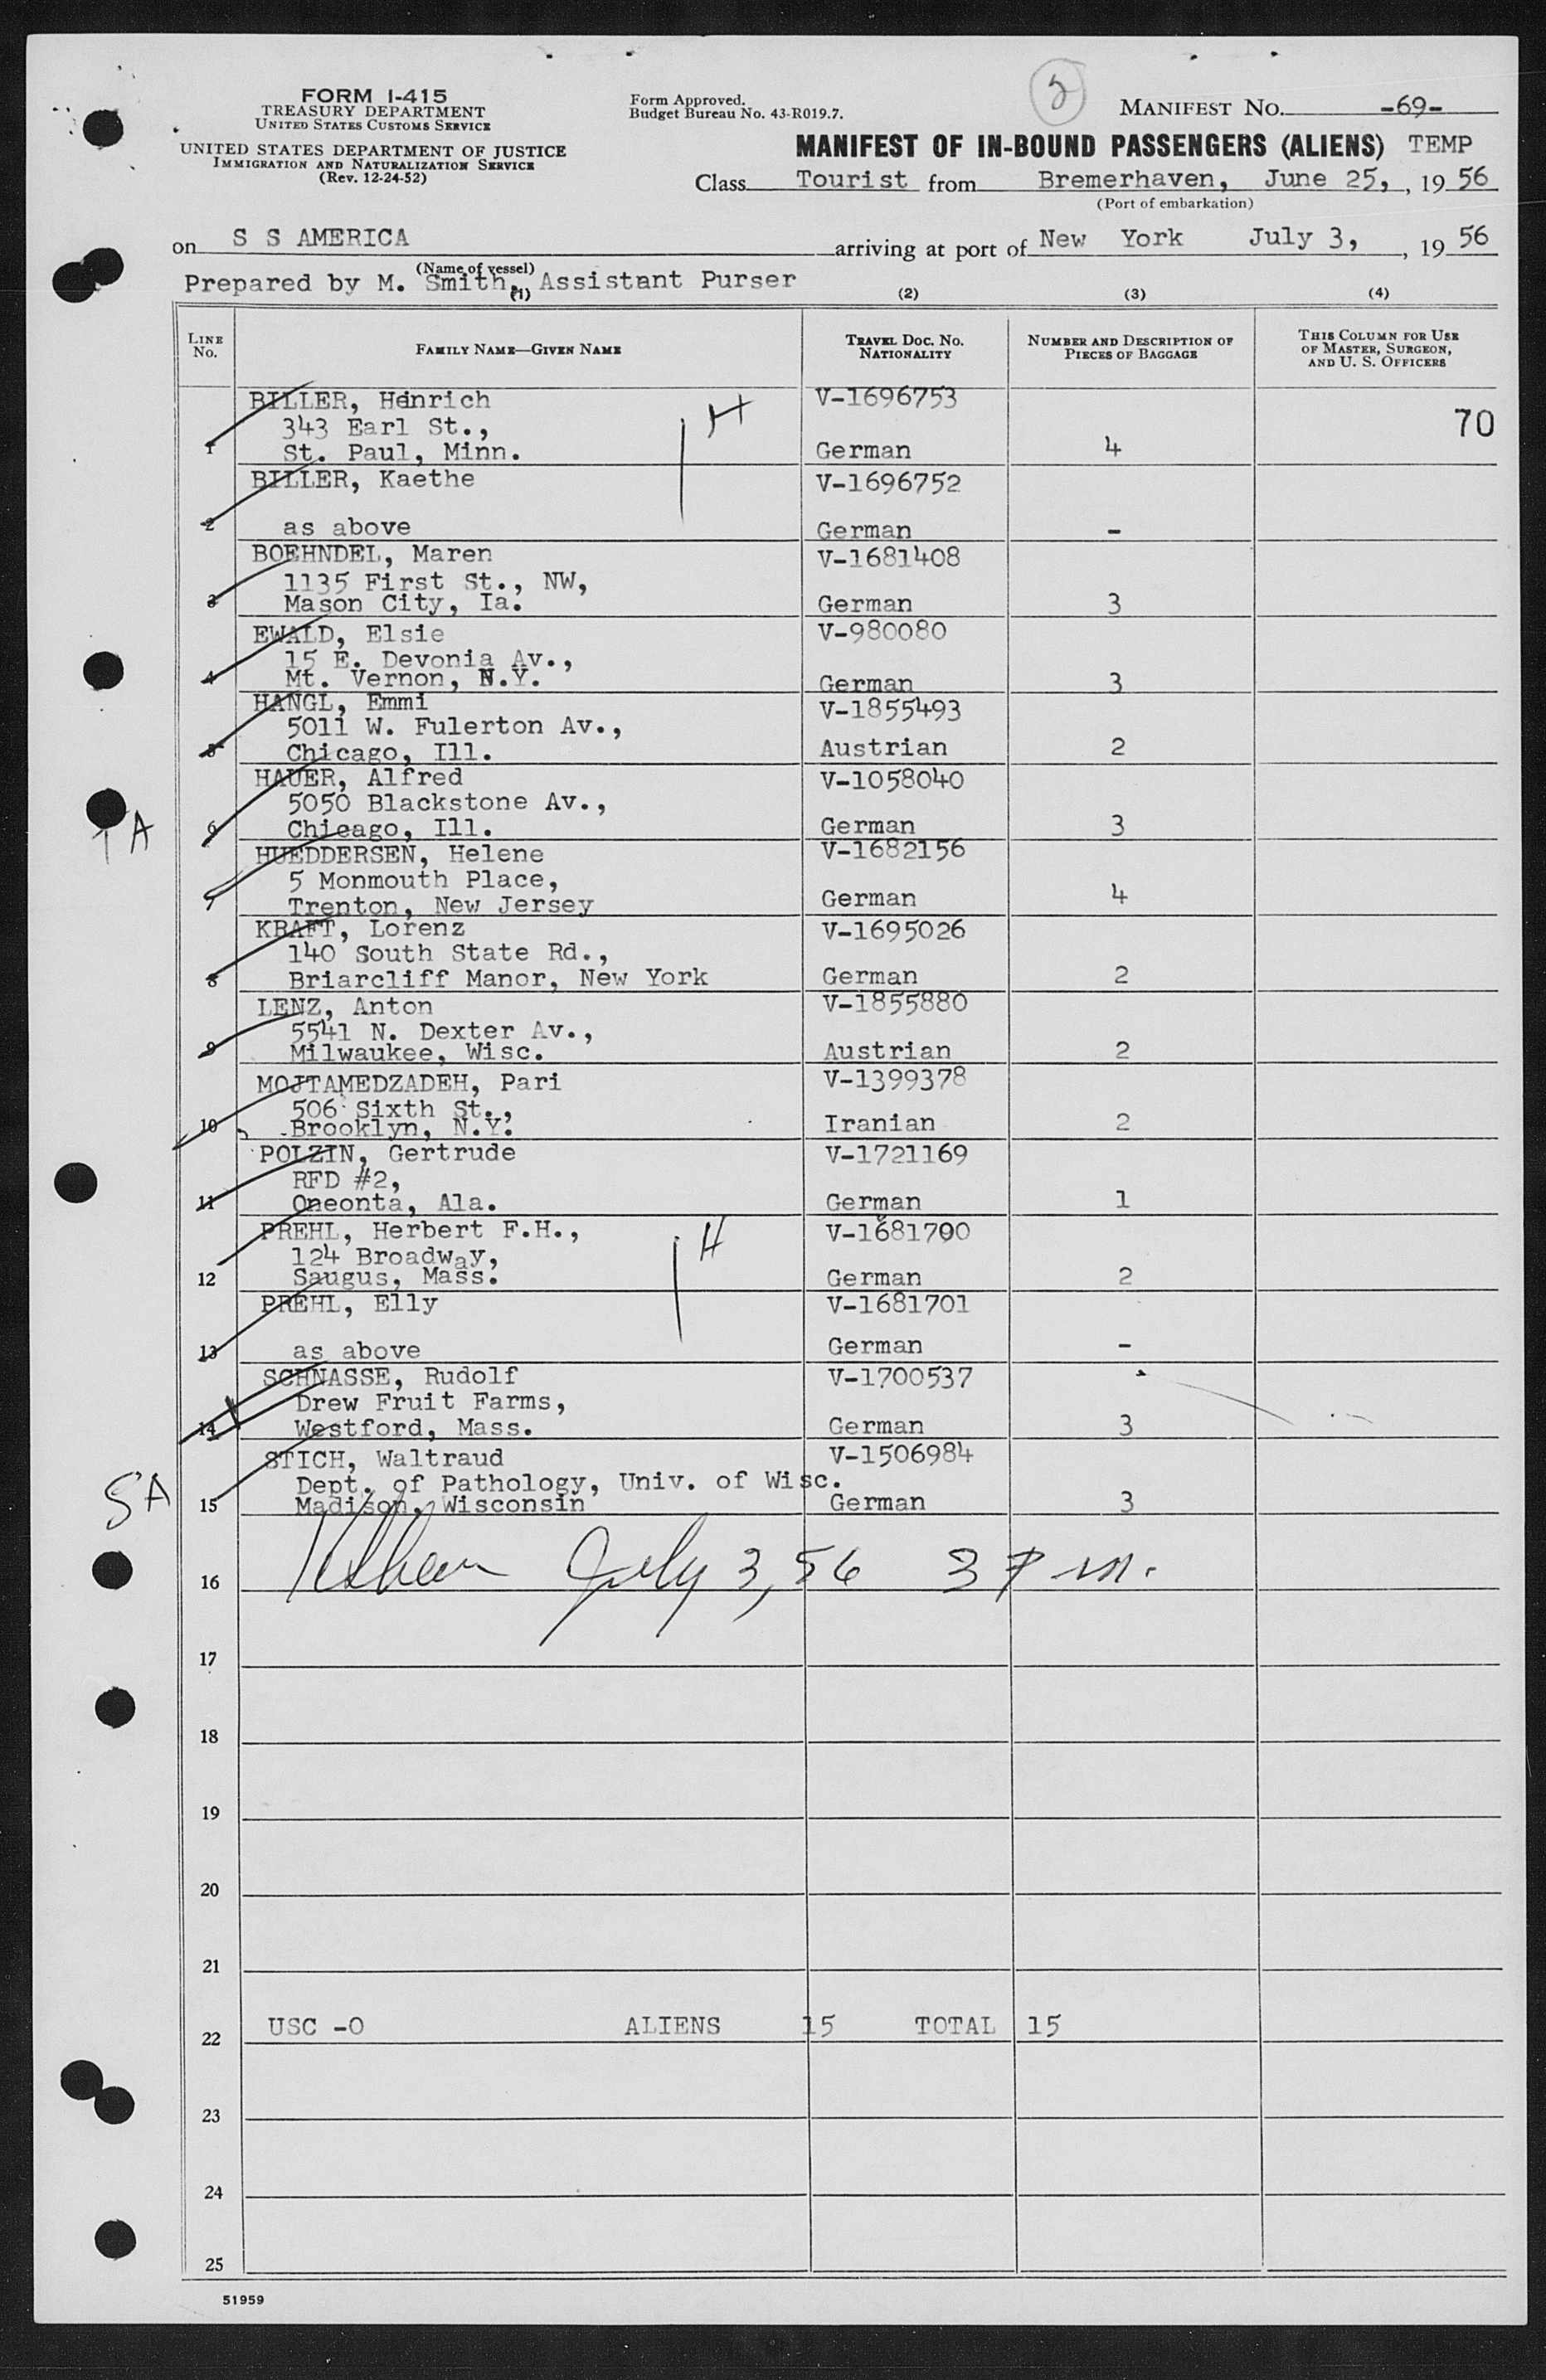 FORM I-415
TREASURY DEPARTMENT
UNITED STATES CUSTOMS SERVICE
UNITED STATES DEPARTMENT OF JUSTICE
IMMIGRATION AND NATURALIZATION SERVICE
(Rev. 12-24-52)
Form Approved.
Budget Bureau No. 43-R019.7.
MANIFEST NO. -69-
MANIFEST OF IN-BOUND PASSENGERS (ALIENS) TEMP
Class Tourist from Bremerhaven, June 25, , 19 56
(Port of embarkation)
on S S AMERICA arriving at port of New York July 3, , 19 56
(Name of vessel)
Prepared by M. Smith, Assistant Purser
(1) (2) (3) (4)
LINE NO. FAMILY NAME—GIVEN NAME TRAVEL DOC. NO. NATIONALITY NUMBER AND DESCRIPTION OF PIECES OF BAGGAGE THIS COLUMN FOR USE OF MASTER, SURGEON, AND U. S. OFFICERS
BILLER, Heinrich V-1696753
343 Earl St., H 70
1 St. Paul, Minn. German 4
BILLER, Kaethe V-1696752
2 as above German -
BOEHNDEL, Maren V-1681408
1135 First St., NW,
3 Mason City, Ia. German 3
EWALD, Elsie V-980080
15 E. Devonia Av.,
4 Mt. Vernon, N.Y. German 3
HANGL, Emmi V-1855493
5011 W. Fulerton Av.,
5 Chicago, Ill. Austrian 2
HAUER, Alfred V-1058040
5050 Blackstone Av.,
1A 6 Chicago, Ill. German 3
HUEDDERSEN, Helene V-1682156
5 Monmouth Place,
7 Trenton, New Jersey German 4
KRAFT, Lorenz V-1695026
140 South State Rd.,
8 Briarcliff Manor, New York German 2
LENZ, Anton V-1855880
5541 N. Dexter Av.,
9 Milwaukee, Wisc. Austrian 2
MOJTAMEDZADEH, Pari V-1399378
506 Sixth St.,
10 Brooklyn, N.Y. Iranian 2
POLZIN, Gertrude V-1721169
RFD #2,
11 Oneonta, Ala. German 1
PREHL, Herbert F.H., H V-1681700
124 Broadway,
12 Saugus, Mass. German 2
PREHL, Elly V-1681701
13 as above German -
SCHNASSE, Rudolf V-1700537
Drew Fruit Farms,
14 Westford, Mass. German 3
STICH, Waltraud V-1506984
Dept. of Pathology, Univ. of Wisc.
5A 15 Madison, Wisconsin German 3
16 July 3, 56 3 P m.
17
18
19
20
21
22 USC -0 ALIENS 15 TOTAL 15
23
24
25
51959